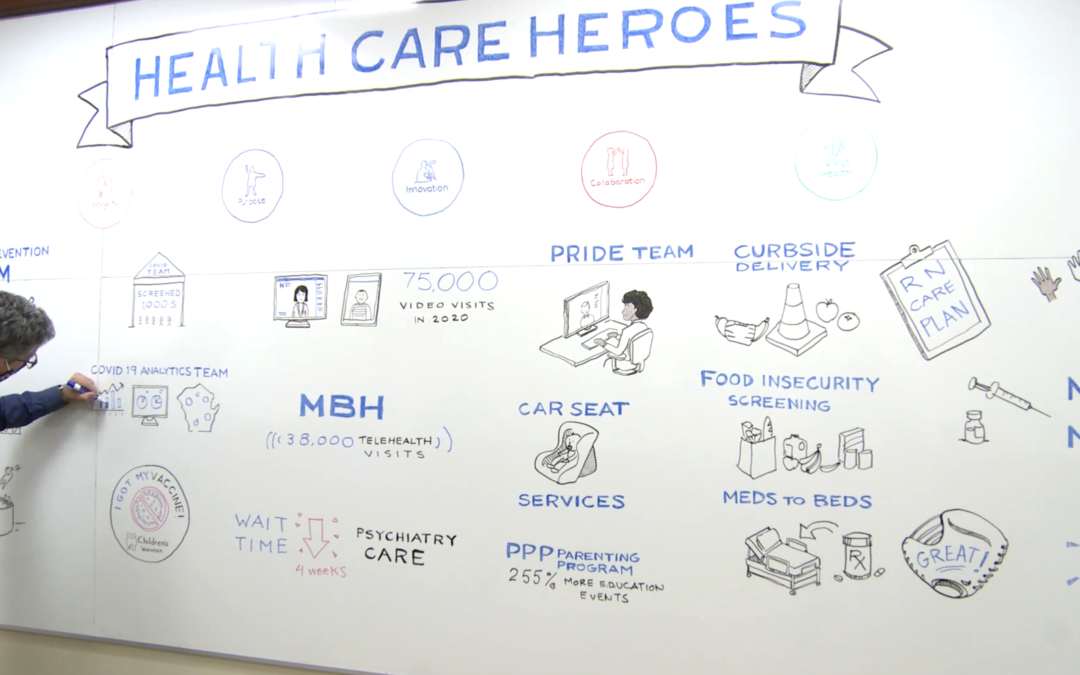 HEALTH CARE HEROES
Purpose
Innovation
Collaboration
Health
EVENTION
M
COVID
TEAM
SCREENED
1000S
75,000
VIDEO VISITS
IN 2020
PRIDE TEAM
CURBSIDE
DELIVERY
RN
CARE
PLAN
COVID 19 ANALYTICS TEAM
MBH
38,000 TELEHEALTH
VISITS
CAR SEAT
SERVICES
FOOD INSECURITY
SCREENING
I GOT MY VACCINE!
Children's
Wisconsin
WAIT
TIME
4 weeks
PSYCHIATRY
CARE
PPP PARENTING
PROGRAM
255% MORE EDUCATION
EVENTS
MEDS TO BEDS
RX
GREAT!